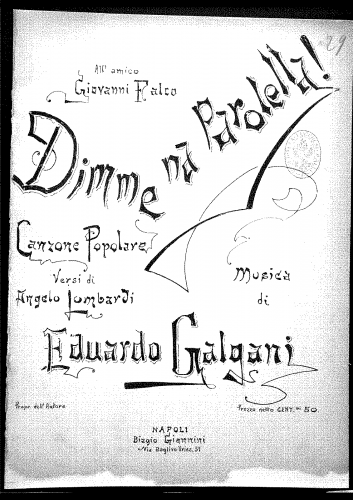 29
All' amico
Giovanni Falco
Dimme na Parolella!
Canzone Popolare
Versi di
Angelo Lombardi
Musica
di
Eduardo Galgani
Propr. dell'Autore
Prezzo netto CENT. 50.
NAPOLI
Biagio Giannini
Via Baglivo Uries, 37